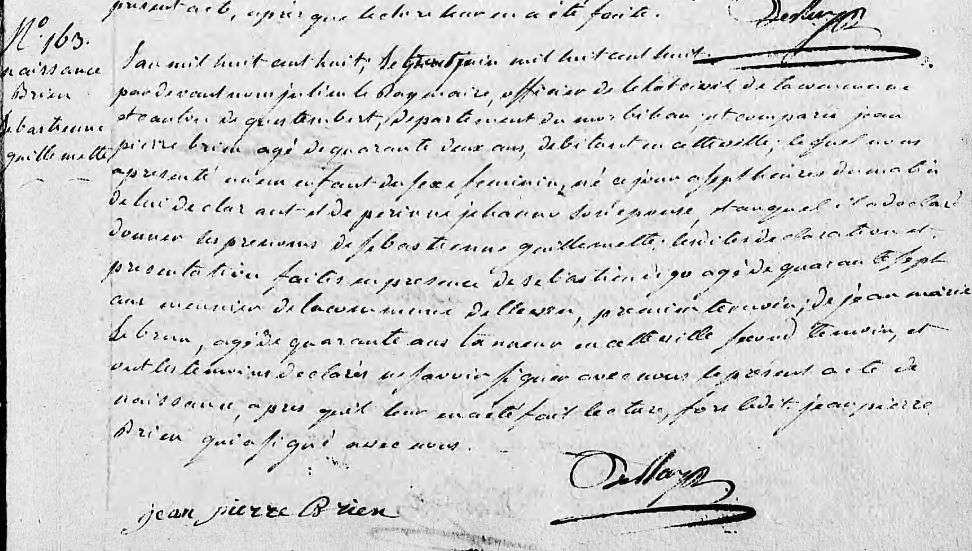 present acte, après que lecture leur en a été faite.
DeRuays
N.° 163.
naissance
Brien
Sebastienne
guillemette
L'an mil huit cent huit, le juin mil huit cent huit
pardevant nous julien le Ray maire, officier de l'etat civil de la commune
et canton de questembert, departement du morbihan, est comparu jean
pierre brien agé de quarante deux ans, debitant en cette ville, lequel nous
a presenté un enfant du sexe feminin, né ce jour a sept heures du matin
de lui declarant et de perinne jehanno son epouse, et auquel il a declaré
donner les prenoms de sebastienne guillemette. lesdites declaration et
presentation faites en presence de sebastien agé de quarante sept
ans meunier de la commune de, premier temoin, de jean marie
Le brun, agé de quarante ans tanneur en cette ville second temoin, et
ont les temoins declarés ne savoir signer avec nous le present acte de
naissance, apres qu'il leur en a eté fait lecture, fors ledit jean pierre
Brien qui a signé avec nous.
jean pierre Brien